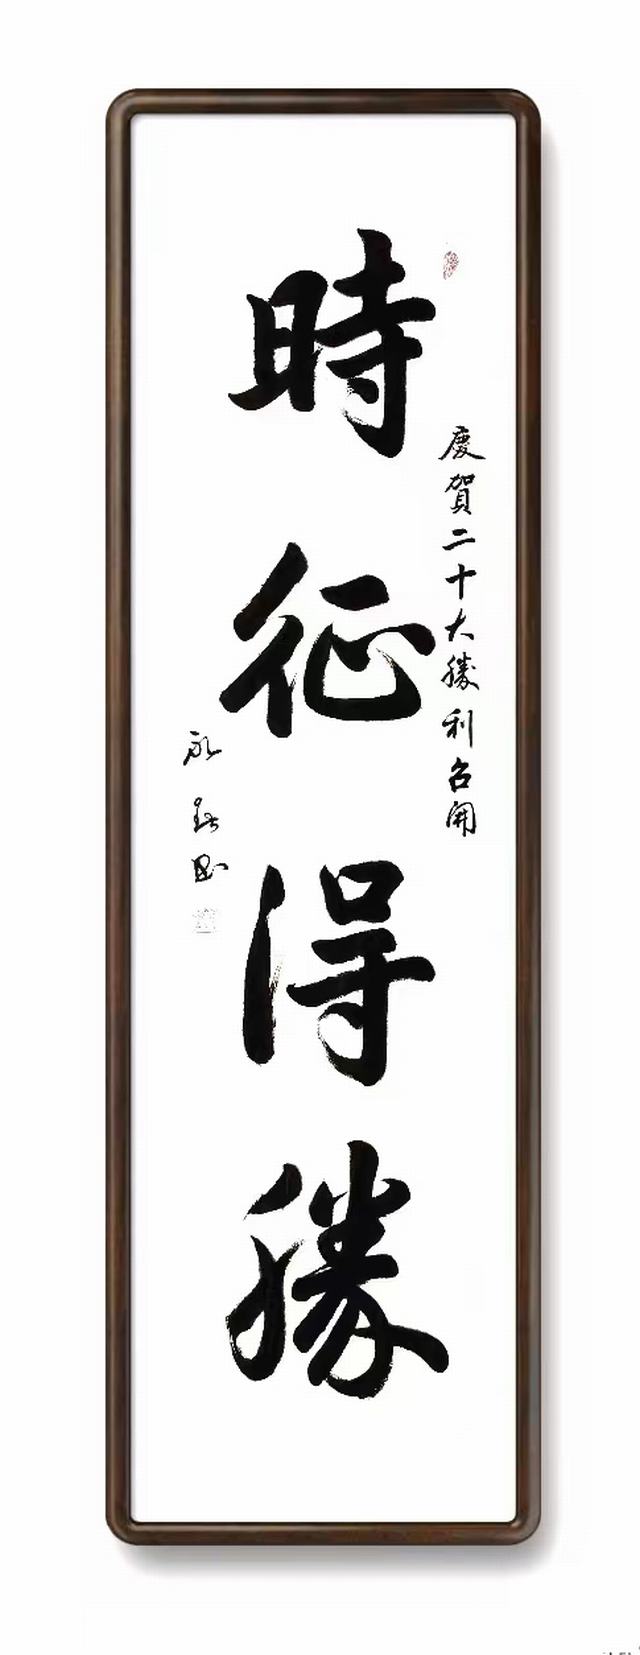 慶賀二十大勝利召開
時征得勝
永